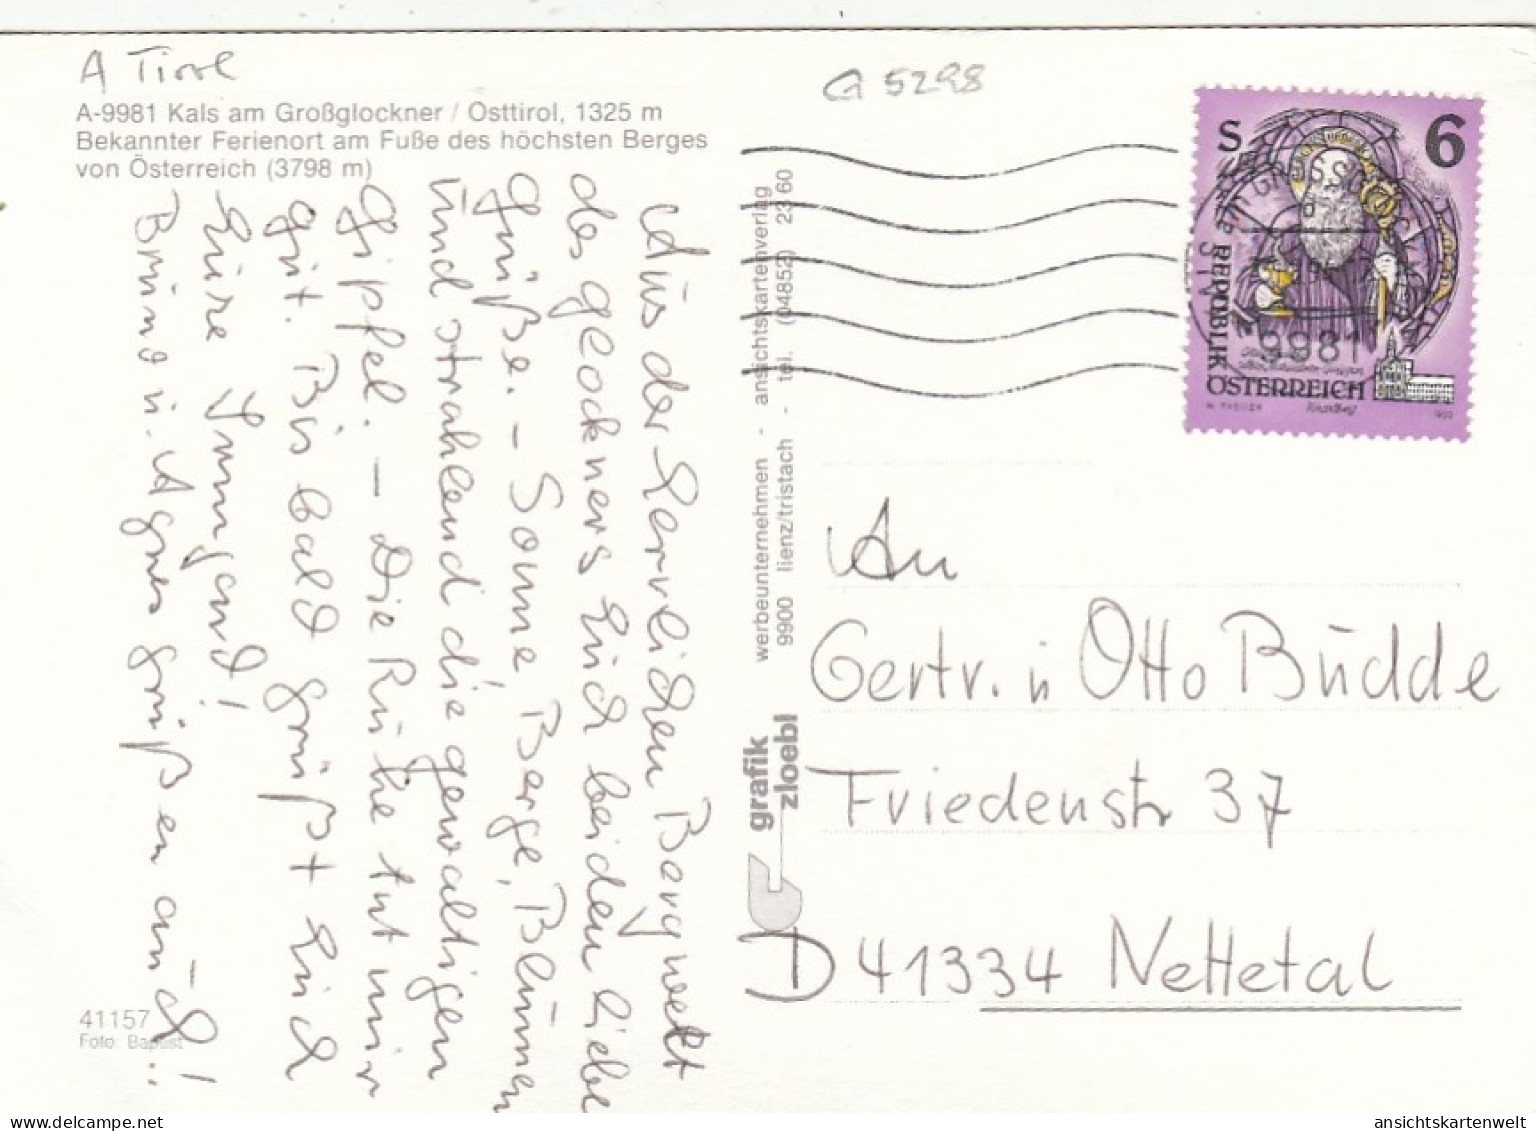 A Tirol
A-9981 Kals am Großglockner / Osttirol, 1325 m
Bekannter Ferienort am Fuße des höchsten Berges
von Österreich (3798 m)
G 5298
S 6
REPUBLIK
ÖSTERREICH
9981
Aus der herrlichen Bergwelt
des Glockners Euch beiden liebe
Grüße. – Sonne, Berge, Blumen
und strahlend die gewaltigen
Gipfel. – Die Ruhe tut mir
gut. Bis bald grüßt Euch
Eure Irmgard!
Brund u. Agnes grüßen auch!
werbeunternehmen - ansichtskartenverlag
9900 lienz/tristach - tel. (04852) 23 60
grafik
zloebl
An
Gertr. u Otto Budde
Friedenstr 37
D 41334 Nettetal
41157
Foto: Baptist
delcampe.net
ansichtskartenwelt